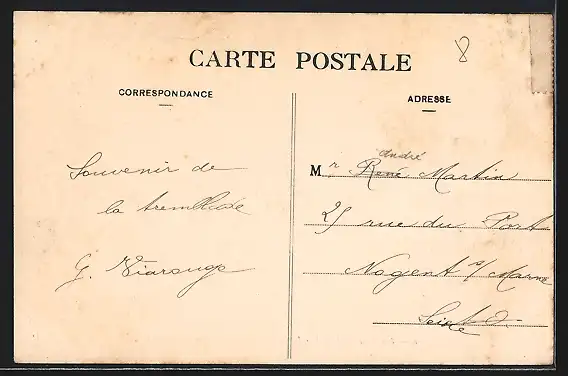 8
CARTE POSTALE
CORRESPONDANCE
ADRESSE
Souvenir de
la tremblade
André
Mr René Martin
25 rue du Port
Nogent s/ Marne
Seine